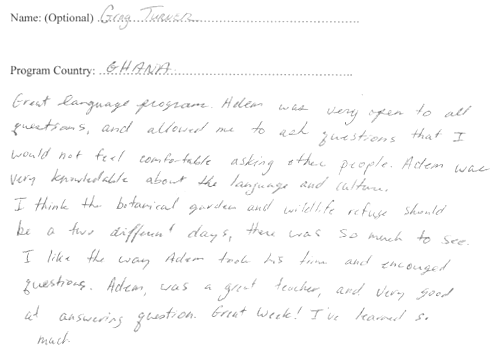 Name: (Optional) Greg Turner
Program Country: GHANA
Great language program. Adem was very open to all
questions, and allowed me to ask questions that I
would not feel comfortable asking other people. Adem was
very knowledable about the language and culture.
I think the botanical garden and wildlife refuge should
be a two different days, there was so much to see.
I like the way Adem took his time and encouged
questions. Adem, was a great teacher, and very good
at answering question. Great Week! I've learned so
much.